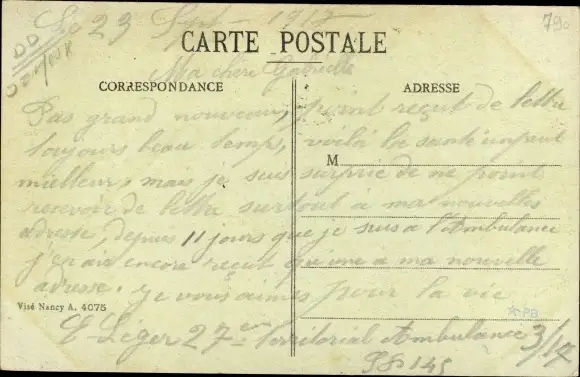 Le 23 Sept 1917
790
DD
CARTE POSTALE
Ma chère Gabrielle
CORRESPONDANCE
ADRESSE
Pas grand nouveau, point reçut de lettre
toujours beau temps, voilà la santé un peut
M
mielleur, mais je suis surprie de ne point
recevoir de lettre surtout à ma nouvelles
adresse, depuis 11 jours que je suis a l'Ambulance
j'ai encore reçut qu'une a ma nouvelle
adresse. je vous aimes pour la vie
Visé Nancy A. 4075
PB
E Léger 27em Territorial Ambulance 3/17
SP 145